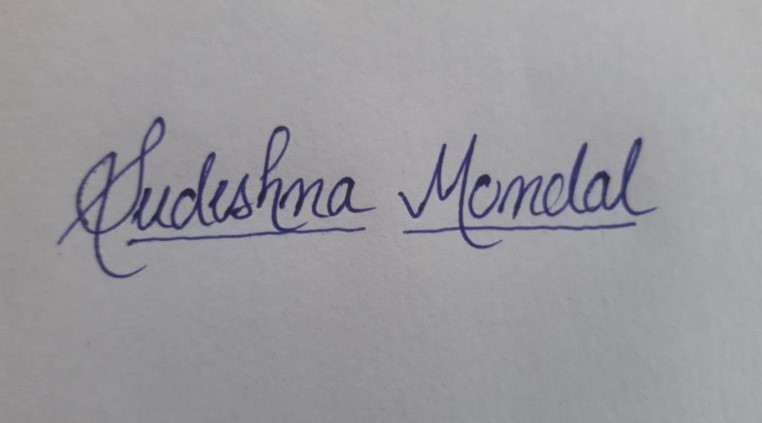 Sudeshna Mondal